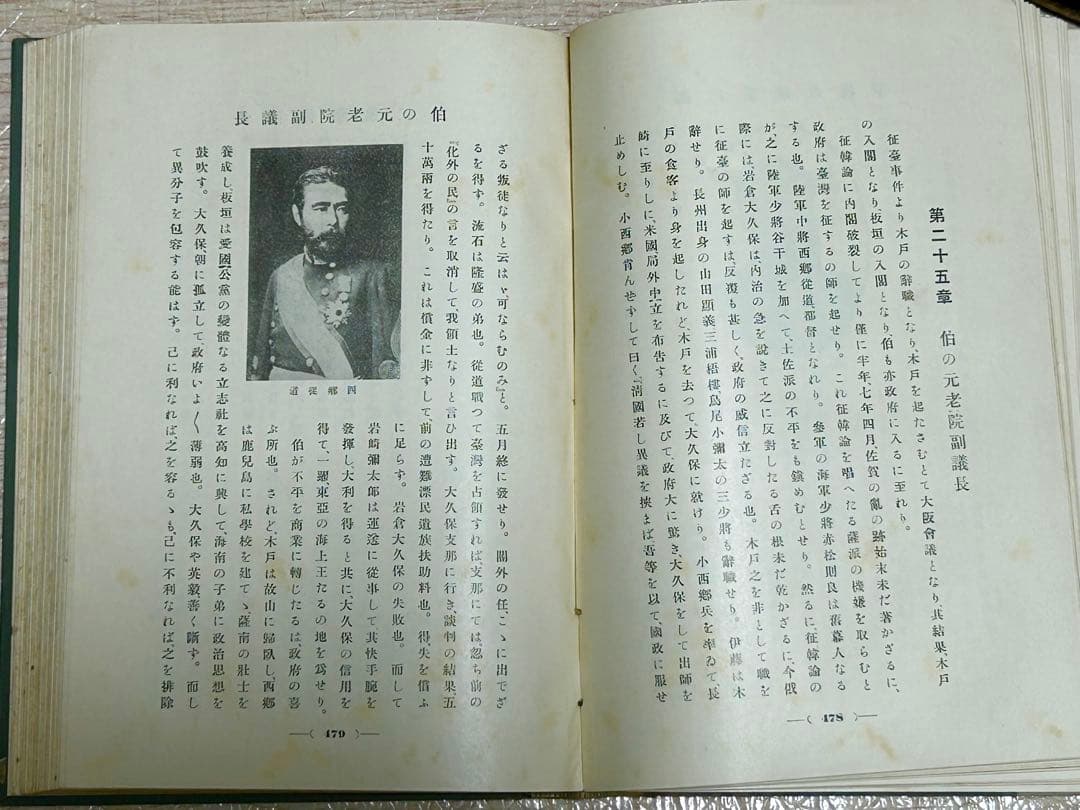 第二十五章　伯の元老院副議長
征臺事件より木戸の辭職となり、木戸を起たさむとて大阪會議となり、其結果、木戸
の入閣となり、板垣の入閣となり、伯も亦政府に入るに至れり。
征韓論に內閣破裂してより僅に半年、七年四月佐賀の亂の跡始末未だ著かざるに、
政府は臺灣を征するの師を起せり。これ征韓論を唱へたる薩派の機嫌を取らむと
する也。陸軍中將西鄕從道都督となれり。參軍の海軍少將赤松則良は舊幕人なる
が、之に陸軍少將谷干城を加へて、土佐派の不平をも鎭めむとせり。然るに、征韓論の
際には、岩倉大久保は、內治の急を說きて之に反對したる舌の根未だ乾かざるに、今俄
に征臺の師を起すは、反覆も甚しく、政府の威信立たざる也。木戸之を非として職を
辭せり。長州出身の山田顯義三浦梧樓鳥尾小彌太の三少將も辭職せり。伊藤は木
戸の食客より身を起したれど、木戸を去つて、大久保に就けり。小西鄕兵を率ゐて長
崎に至りしに、米國局外中立を布吿するに及びて、政府大に驚き、大久保をして出師を
止めしむ。小西鄕肯んせずして曰く、『淸國若し異議を挾まば、吾等を以て、國政に服せ
—( 478 )—
伯の元老院副議長
ざる叛徒なりと云はゞ可ならむのみ』と。五月終に發せり。閫外の任、こゝに出でざ
るを得す。流石は隆盛の弟也。從道戰つて臺灣を占領すれば支那にては、忽ち前の
『化外の民』の言を取消して『我領土なり』と言ひ出す。大久保支那に行き、談判の結果五
十萬兩を得たり。これは償金に非すして前の遭難漂民遺族扶助料也。得失を償ふ
に足らす。岩倉大久保の失敗也。而して
岩崎彌太郎は運送に從事して其快手腕を
發揮し、大利を得ると共に、大久保の信用を
得て、一躍、東亞の海上王たるの地を爲せり。
伯が不平を商業に轉じたるは政府の喜
ぶ所也。されど、木戸は故山に歸臥し、西鄕
は鹿兒島に私學校を建てゝ薩南の壯士を
養成し、板垣は愛國公黨の變體なる立志社を高知に興して、海南の子弟に政治思想を
鼓吹す。大久保、朝に孤立して政府いよ〱薄弱也。大久保や英毅、善く斷す。而し
て異分子を包容する能はす。己に利なれば之を容るゝも、己に不利なれば、之を排除
西鄕從道
—( 479 )—